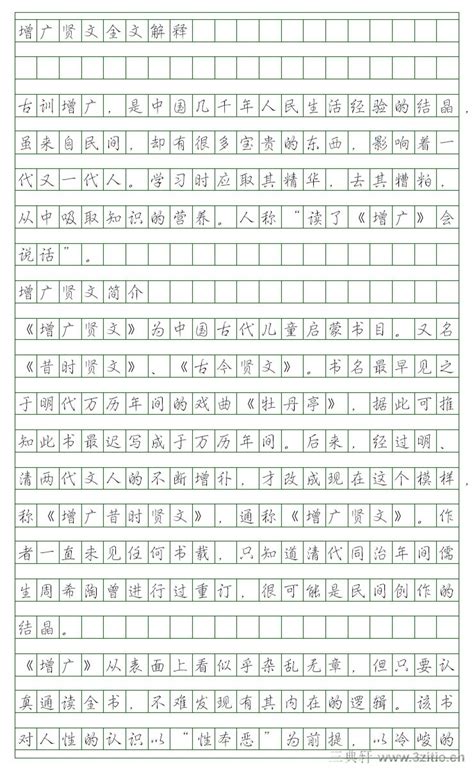 增广贤文全文解释
古训增广，是中国几千年人民生活经验的结晶，
虽来自民间，却有很多宝贵的东西，影响着一
代又一代人。学习时应取其精华，去其糟粕，
从中吸取知识的营养。人称“读了《增广》会
说话”。
增广贤文简介
《增广贤文》为中国古代儿童启蒙书目。又名
《昔时贤文》、《古今贤文》。书名最早见之
于明代万历年间的戏曲《牡丹亭》，据此可推
知此书最迟写成于万历年间。后来，经过明、
清两代文人的不断增补，才改成现在这个模样，
称《增广昔时贤文》，通称《增广贤文》。作
者一直未见任何书载，只知道清代同治年间儒
生周希陶曾进行过重订，很可能是民间创作的
结晶。
《增广》从表面上看似乎杂乱无章，但只要认
真通读全书，不难发现有其内在的逻辑。该书
对人性的认识以“性本恶”为前提，以冷峻的
三典轩 www.3zitie.cn